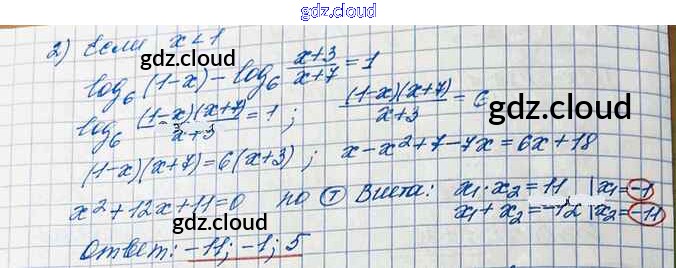 gdz.cloud
2) Если x < 1
gdz.cloud
log₆ (1-x) - log₆ (x+3)/(x+7) = 1
log₆ (1-x)(x+7)/(x+3) = 1 ; (1-x)(x+7)/(x+3) = 6
gdz.cloud
(1-x)(x+7) = 6(x+3) ; x-x²+7-7x=6x+18
x²+12x+11=0 по Т Виета: x₁·x₂=11 | x₁=-1
x₁+x₂=-12 | x₂=-11
gdz.cloud
Ответ: -11; -1; 5